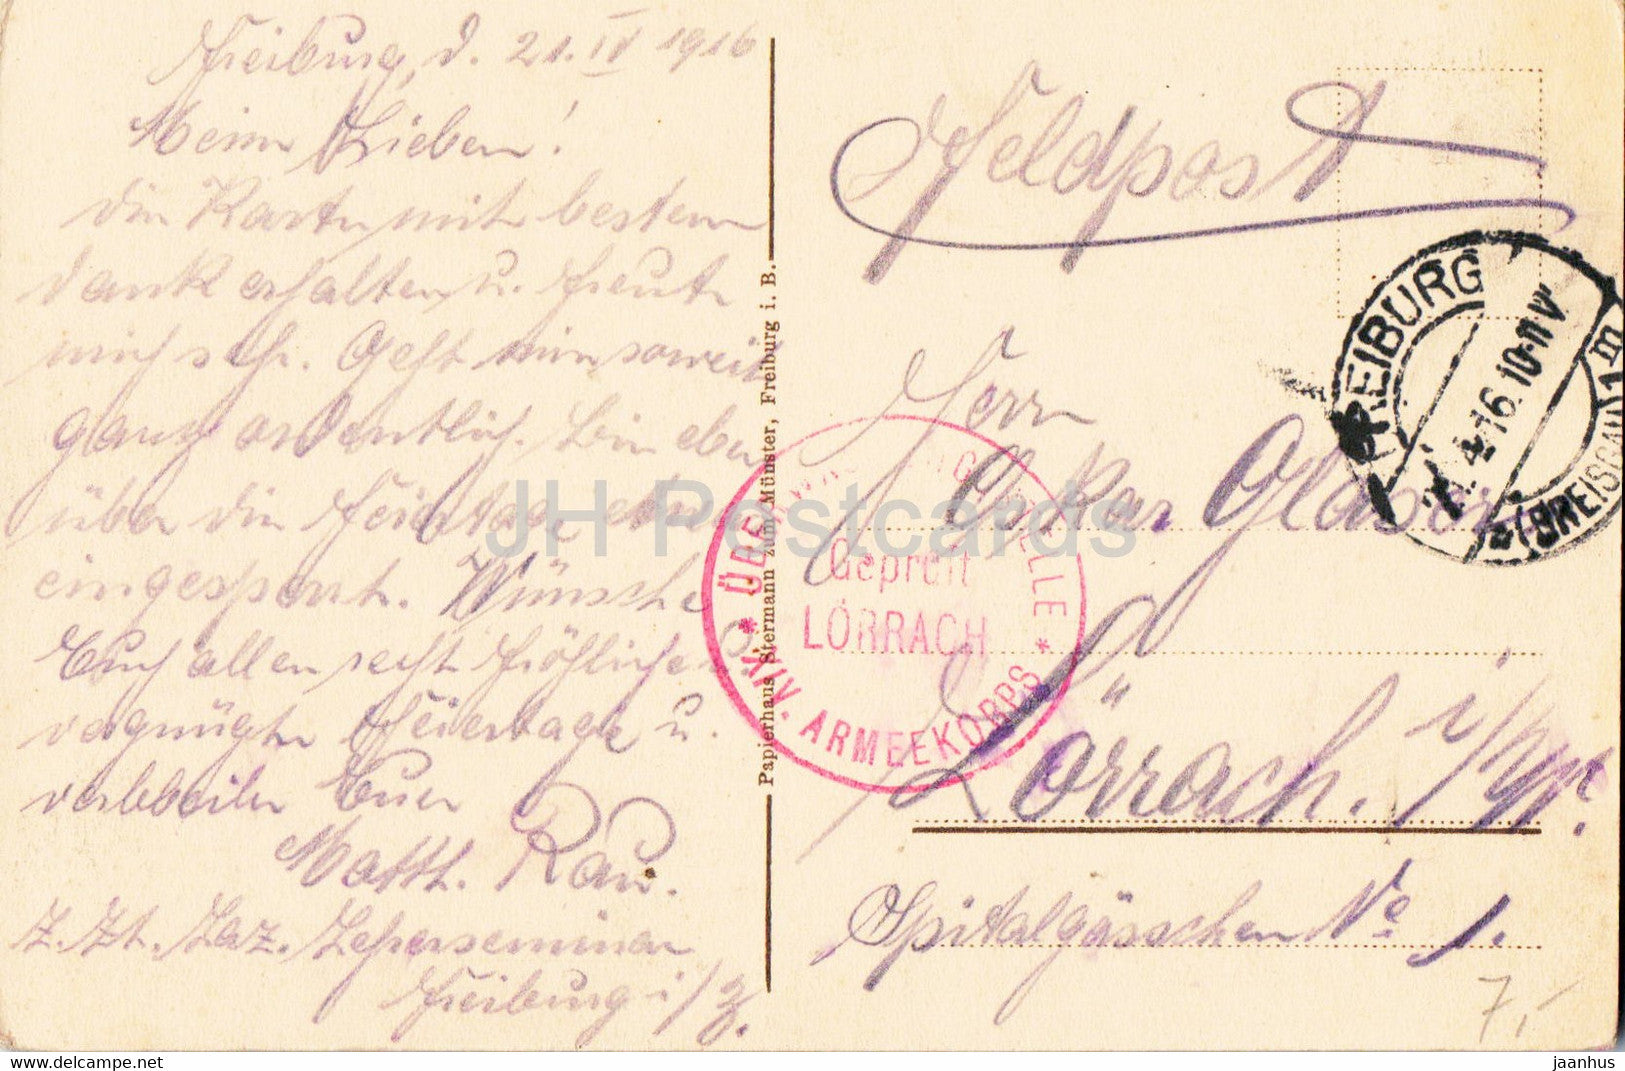 Freiburg, d. 21. IV 1916
Meine Lieben!
die Karte mit bestem
dank erhalten u. freute
mich sehr. Geht mir soweit
ganz ordentlich. bin eben
über die Feiertage etwas
eingesperrt. Wünsche
Euch allen recht fröhliche u.
vergnügte Feiertage u.
verbleibe Euer
Matth. Rau.
z. Zt. Laz. Leherseminar
Freiburg i/B.
Papierhaus Stermann zum Münster, Freiburg i. B.
Feldpost
FREIBURG
(BREISGAU) 1 m
21.4.16. 10-11 V
Herrn
Oskar Glaser
Lörrach. i/W.
Spitalgässchen No 1.
7,-
ÜBERWACHUNGSSTELLE
Geprüft
LÖRRACH
* XIV. ARMEEKORPS *
JH Postcards
postcard.com
jaanhus